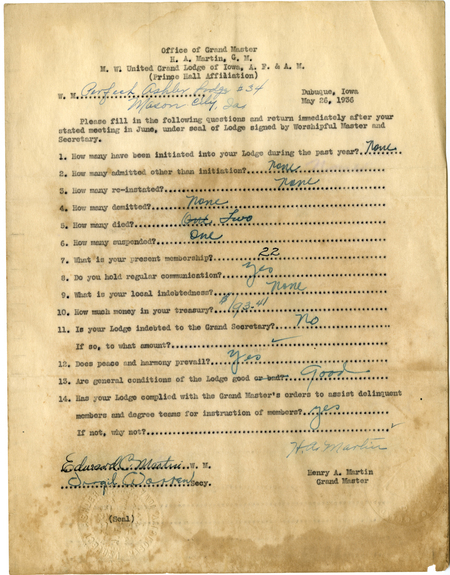 Office of Grand Master
H. A. Martin, G. M.
M. W. United Grand Lodge of Iowa, A. F. & A. M.
(Prince Hall Affiliation)
W. M. Perfect Ashlar Lodge #34 Dubuque, Iowa
Mason City, Ia May 26, 1936
Please fill in the following questions and return immediately after your
stated meeting in June, under seal of Lodge signed by Worshipful Master and
Secretary.
1. How many have been initiated into your Lodge during the past year? None
2. How many admitted other than initiation? None
3. How many re-instated? None
4. How many demitted? None
5. How many died? One Two
6. How many suspended? One
7. What is your present membership? 22
8. Do you hold regular communication? Yes
9. What is your local indebtedness? None
10. How much money in your treasury? $193.41
11. Is your Lodge indebted to the Grand Secretary? No
If so, to what amount?
12. Does peace and harmony prevail? Yes
13. Are general conditions of the Lodge good or bad? Good
14. Has your Lodge complied with the Grand Master's orders to assist delinquent
members and degree teams for instruction of members? yes
If not, why not?
H A Martin
Edward C. Martin W. M.
Joseph Secy. Henry A. Martin
Grand Master
(Seal)